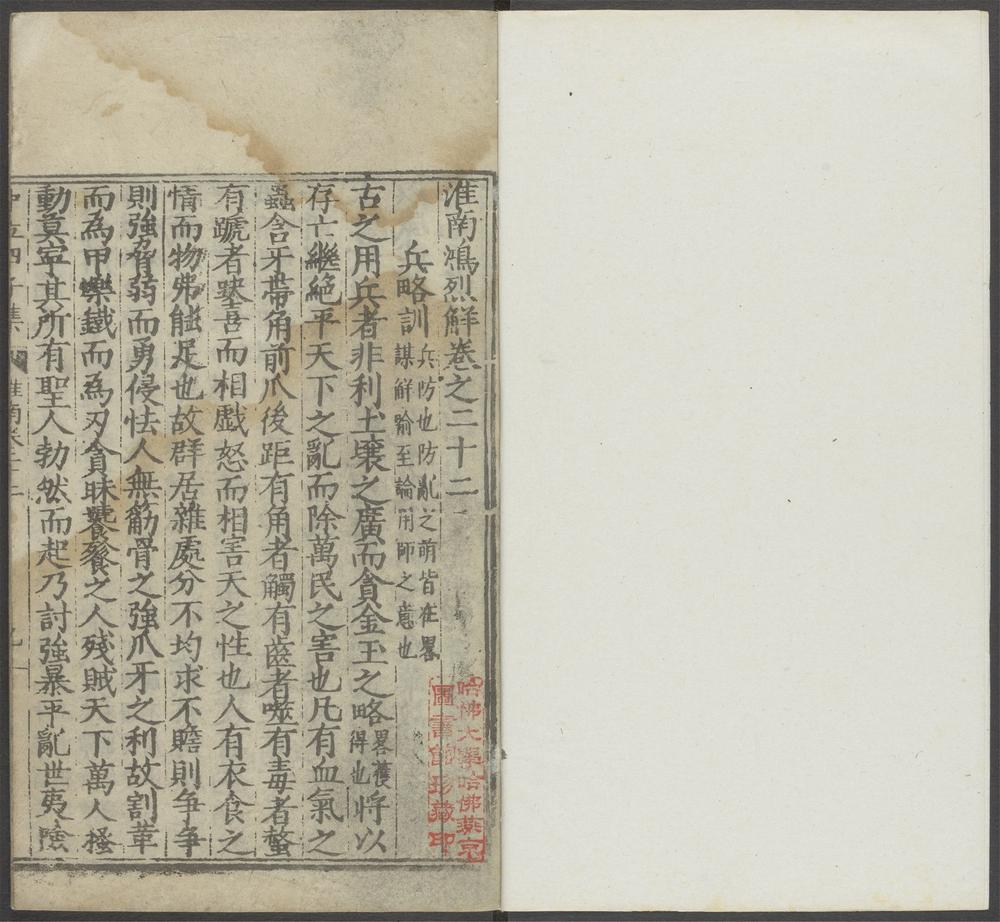 淮南鴻烈解卷之二十二
兵略訓 兵防也防亂之萌皆在畧
謀解喻至論用師之意也
古之用兵者非利土壤之廣而貪金玉之略 畧獲得也 將以
存亡繼絕平天下之亂而除萬民之害也凡有血氣之
蟲含牙帶角前爪後距有角者觸有齒者噬有毒者螫
有蹏者趹喜而相戲怒而相害天之性也人有衣食之
情而物弗能足也故群居雜處分不均求不贍則爭爭
則強脅弱而勇侵怯人無筋骨之強爪牙之利故割革
而為甲爍鐵而為刃貪昧饕餮之人殘賊天下萬人搔
動莫寧其所有聖人勃然而起乃討強暴平亂世夷險
子集
哈佛大學哈佛燕京
圖書館珍藏印